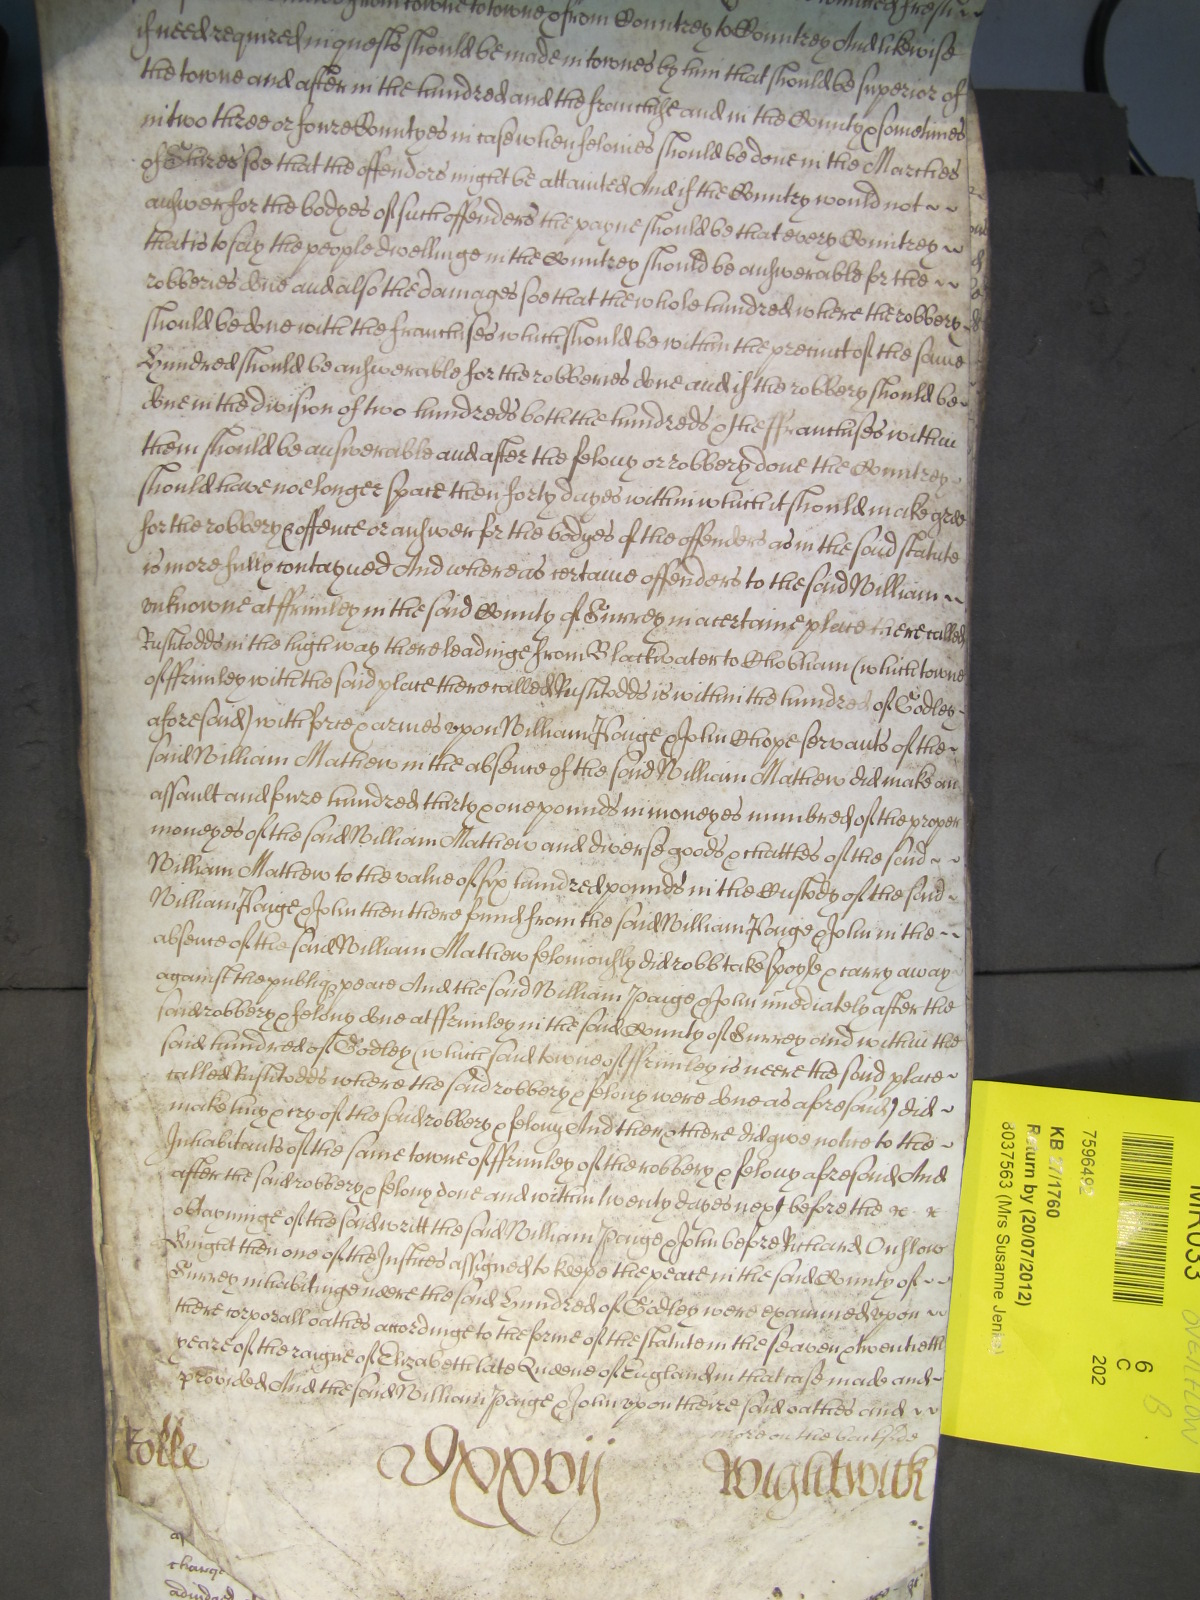 from towne to towne & from Countrey to Countrey And likewise
if need required inquests should be made in townes by him that should be superior of
the towne and after in the hundred and the franchise and in the County & sometimes
in two three or foure Countyes in case when felonies should be done in the Marches
of Shires soe that the offendors might be attainted And if the Countrey would not
answer for the bodyes of such offenders the payne should be that every Countrey
that is to say the people dwellinge in the Countrey should be answerable for the
robberies done and also the damages soe that the whole hundred where the robbery
should be done with the franchises which should be within the precinct of the same
Hundred should be answerable for the robberies done and if the robbery should be
done in the division of two hundreds both the hundreds & the ffranchises within
them should be answerable and after the felony or robbery done the Countrey
should have noe longer space then forty dayes within which it should make gree
for the robbery & offence or answer for the bodyes of the offenders as in the said statute
is more fully contayned And whereas certaine offenders to the said William
unknowne at ffrimley in the said County of Surrey in a certaine place there called
Rushtodds in the high way there leadinge from Blackwater to Chobham (which towne
of ffrimley with the said place there called Rushtodds is within the hundred of Godley
aforesaid) with force & armes upon William Paige & John Chope servants of the
said William Mathew in the absence of the said William Mathew did make an
assault and foure hundred thirty & one pounds in moneyes numbred of the proper
moneyes of the said William Mathew and diverse goods & chattles of the said
William Mathew to the value of six hundred pounds in the Custody of the said
William Paige & John then there found from the said William Paige & John in the
absence of the said William Mathew feloniously did robb take spoyle & carry away
against the publiq peace And the said William Paige & John imediately after the
said robbery & felony done at ffrimley in the said County of Surrey and within the
said hundred of Godley (which said towne of ffrimley is neere the said place
called Rushtodds where the said robbery & felony were done as aforesaid) did
make huy & cry of the said robbery & felony And then & there did give notice to the
Inhabitants of the same towne of ffrimley of the robbery & felony aforesaid And
after the said robbery & felony done and within twenty dayes next before the
obtayninge of the said writt the said William Paige & John before Richard Onslow
Knight then one of the Justices assigned to keepe the peace in the said County of
Surrey inhabitinge neere the said Hundred of Godley were examined upon
there corporall oathes accordinge to the forme of the statute in the seaven & twentieth
yeare of the raigne of Elizabeth late Queene of England in that case made and
provided And the said William Paige & John upon theire said oathes and
more on the backside
Rolle Dxxvij Wightwick
change
adiudged
7596492
KB 27/1760
Return by (20/07/2012)
8037563 (Mrs Susanne Jenks)
MR033
6
C
202
OVERFLOW
B